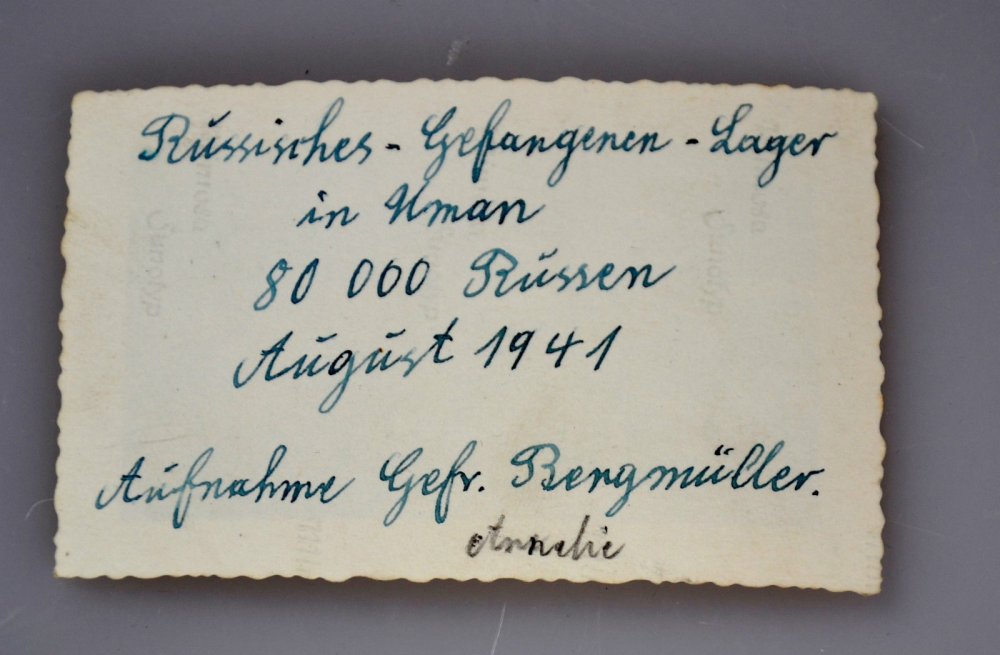 Russisches - Gefangenen - Lager
in Uman
80 000 Russen
August 1941
Aufnahme Gefr. Bergmüller.
Annelie